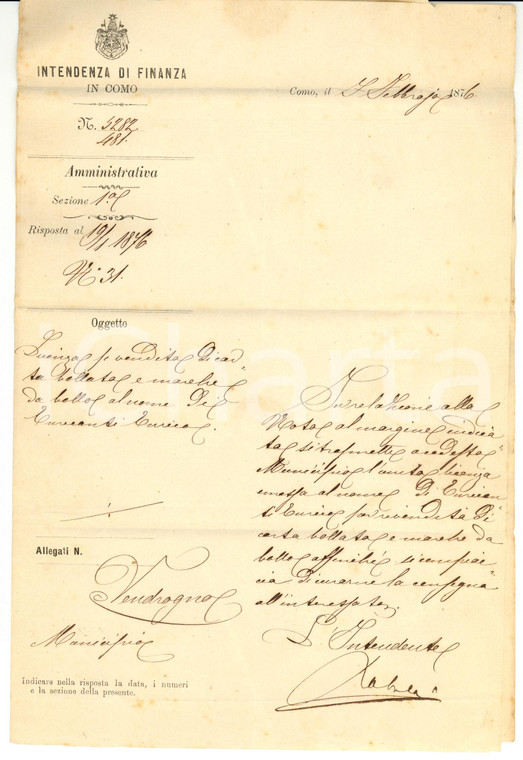 INTENDENZA DI FINANZA
IN COMO
Como, il Febbrajo 1876
N. 3282
481
Amministrativa
Sezione 1.a
Risposta al 19/1 1876
N. 31.
Oggetto
Licenza p vendita di car„
ta bollata e marche
da bollo al nome di
Enrico.
Allegati N.
Vendrogno
Municipio
Indicare nella risposta la data, i numeri
e la sezione della presente.
In relazione alla
Nota al margine indica
ta si trasmette a codesto
Municipio l'unita licenza
emessa al nome di
Enrico per rivendita di
carta bollata e marche da
bollo affinché si compiac
cia di curarne la consegna
all'interessato.
L'Intendente